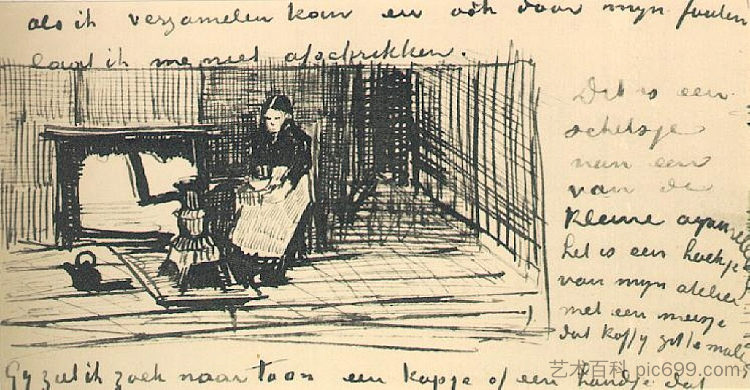 als ik verzamelen kan en ook door mijn fouten
laat ik me niet afschrikken.
Dit is een
schetsje
van een
van de
kleine aquarelle
het is een hoekje
van mijn atelier
met een meisje
dat koffij zit te malen
Gij ziet ik zoek naar toon een kopje of een handje dat
艺术百科 pic699.com